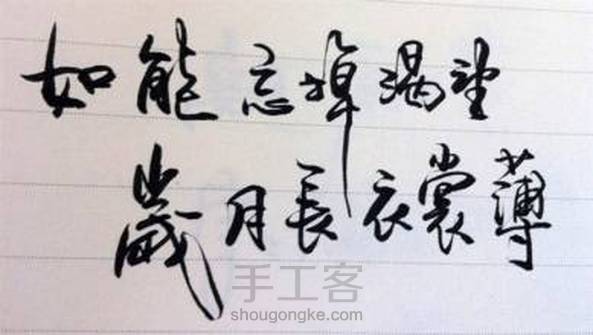 如能忘掉渴望
歲月長衣裳薄
手工客
shougongke.com